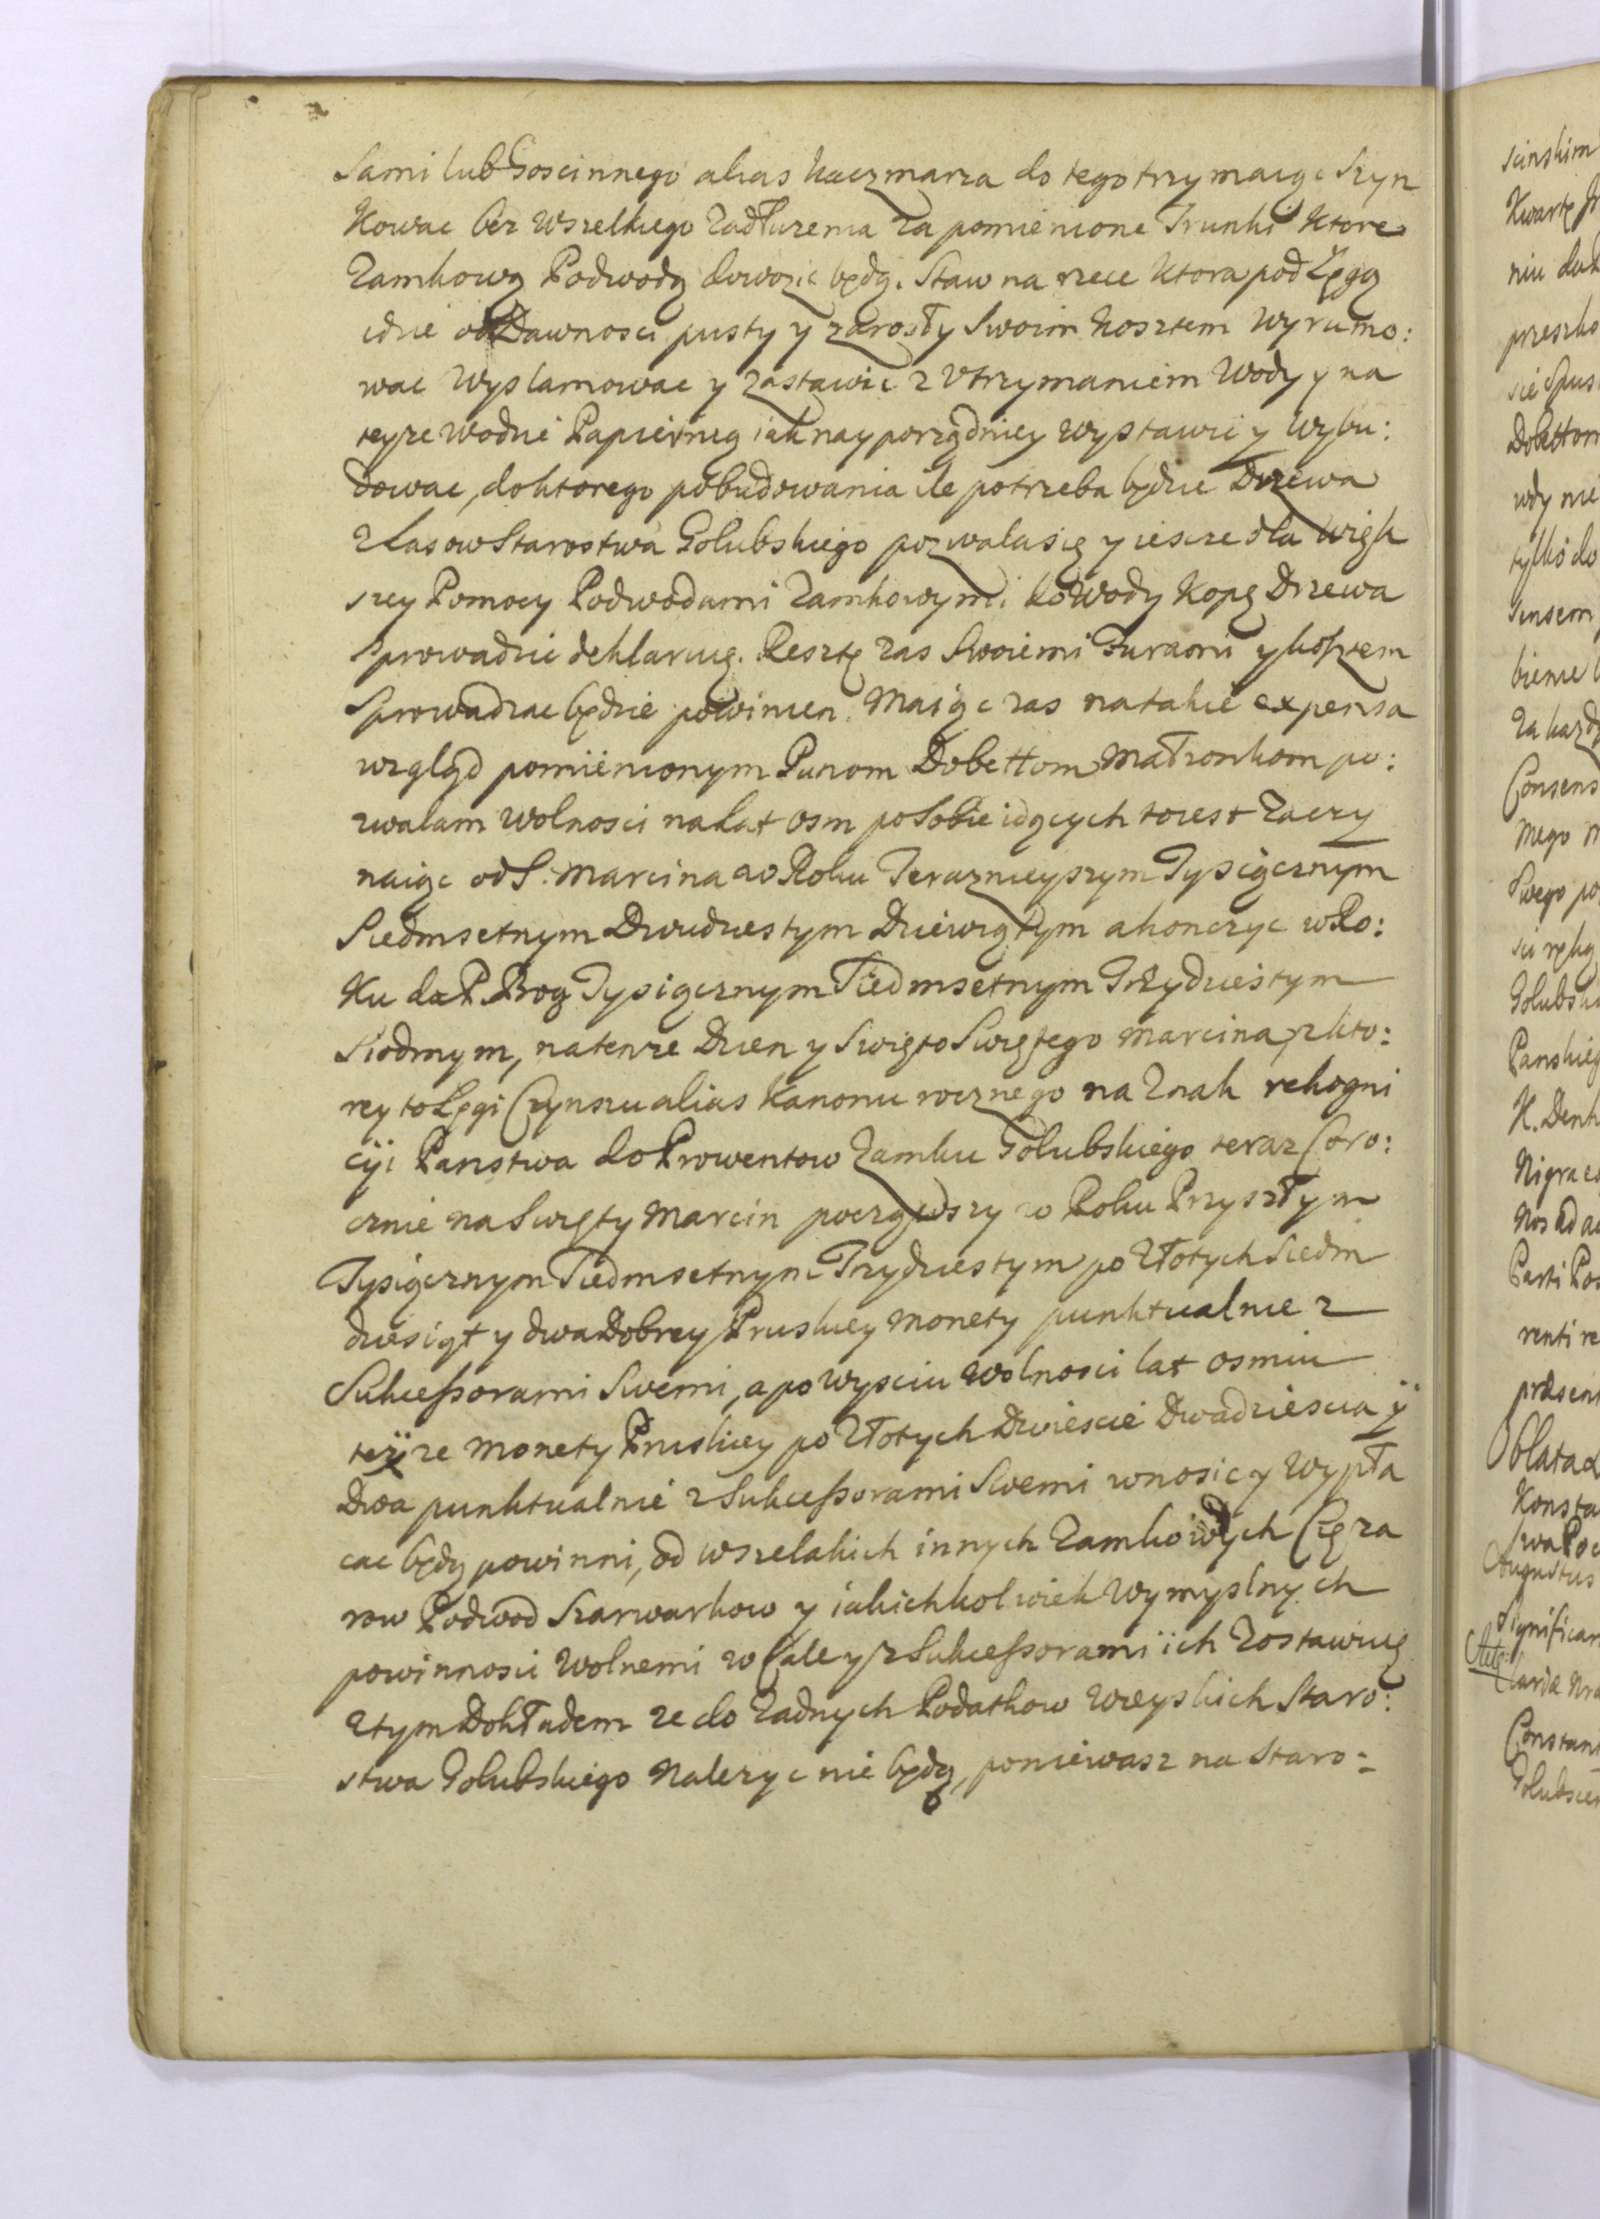 Sami lub Goscinnego alias kaczmarza do tego trzymaiąc Szyn
kowac bez wszelkiego zadłuzenia za pomienione Trunki ktore
Zamkową Podwodą dowozic będą. Staw na rzece ktora pod Łęgą
idzie od Dawnosci pusty y zarosły Swoim kosztem wyrumo:
wac wyslamowac y zastawic z Utrzymaniem Wody y na
teyze wodzie Papiernią iak nayporządniey wystawic y wybu:
dowac, do ktorego pobudowania ile potrzeba będzie Drzewa
z Lasow Starostwa Golubskiego pozwala się y iescze dla więk
szey Pomocy Podwodami Zamkowymi do Wody kopę Drzewa
Sprowadzic deklaruię. Resztę zas Swoiemi Furami y kosztem
Sprowadzac będzie powinien. Maiąc zas na takie expensa
wzgląd pomienionym Panom Dobettom Małzonkom po:
zwalam wolnosci na Lat osm po Sobie idących to iest zaczy
naiąc od S. Marcina w Roku Teraznieyszym Tysiącznym
Siedmsetnym Dwudziestym Dziewiątym a konczyc w Ro:
ku da P. Bog Tysiącznym Siedmsetnym Trzydziestym
Siodmym, na tenze Dzien y Swięto Swiętego Marcina, z kto:
rey to Łęgi Czynszu alias Kanonu rocznego na Znak rekogni
cyi Panstwa do Prowentow Zamku Golubskiego teraz Coro:
cznie na Swięty Marcin począwszy w Roku Przyszłym
Tysiącznym Siedmsetnym Trzydziestym po Złotych Siedm
dziesiąt y dwa Dobrey Pruskiey Monety punktualnie z
Sukcessorami Swemi, a po wysciu wolnosci lat osmiu
teyze Monety Pruskiey po Złotych Dwiescie Dwadziescia y
Dwa punktualnie z Sukcessorami Swemi wnosic y wypła
cac będą powinni, od wszelakich innych Zamkowych Cięza
row Podwod Szarwarkow y iakichkolwiek wymyslnych
powinnosci wolnemi w Cale y z Sukcessorami ich zostawuię
z tym Dokładem ze do zadnych Podatkow wieyskich Staro:
stwa Golubskiego nalezyc nie będą, poniewasz na Staro: